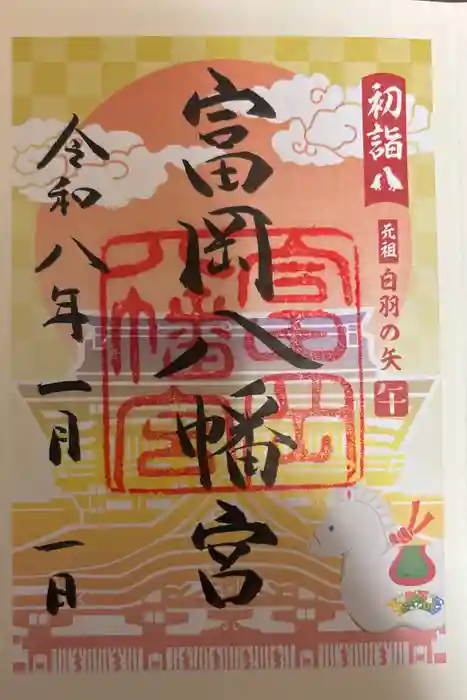 初詣
元祖
白羽の矢
午
富岡八幡宮
富岡八幡宮
令和八年一月一日